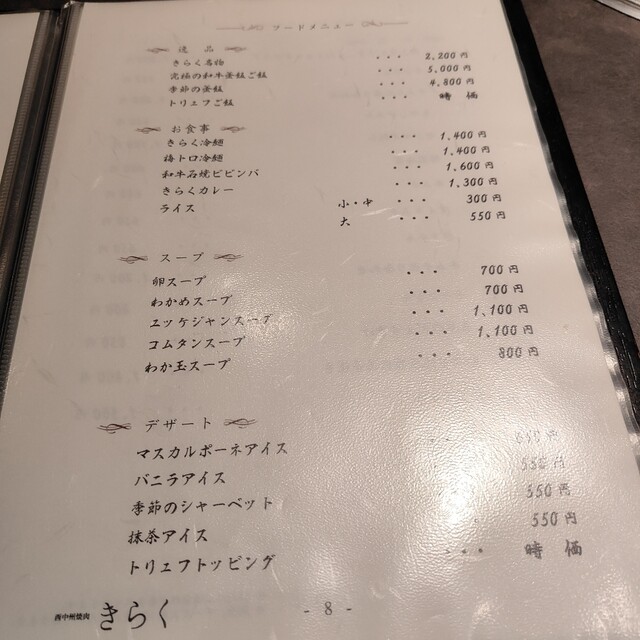 フードメニュー
逸品
きらく名物 ・・・ 2,200円
究極の和牛釜飯ご飯 ・・・ 5,000円
季節の釜飯 ・・・ 4,800円
トリュフご飯 ・・・ 時価
お食事
きらく冷麺 ・・・ 1,400円
梅トロ冷麺 ・・・ 1,400円
和牛石焼ビビンバ ・・・ 1,600円
きらくカレー ・・・ 1,300円
ライス 小・中 ・・・ 300円
大 ・・・ 550円
スープ
卵スープ ・・・ 700円
わかめスープ ・・・ 700円
ユッケジャンスープ ・・・ 1,100円
コムタンスープ ・・・ 1,100円
わか玉スープ ・・・ 800円
デザート
マスカルポーネアイス 円
バニラアイス 550円
季節のシャーベット 550円
抹茶アイス 550円
トリュフトッピング ・・・ 時価
西中州焼肉 きらく
- 8 -